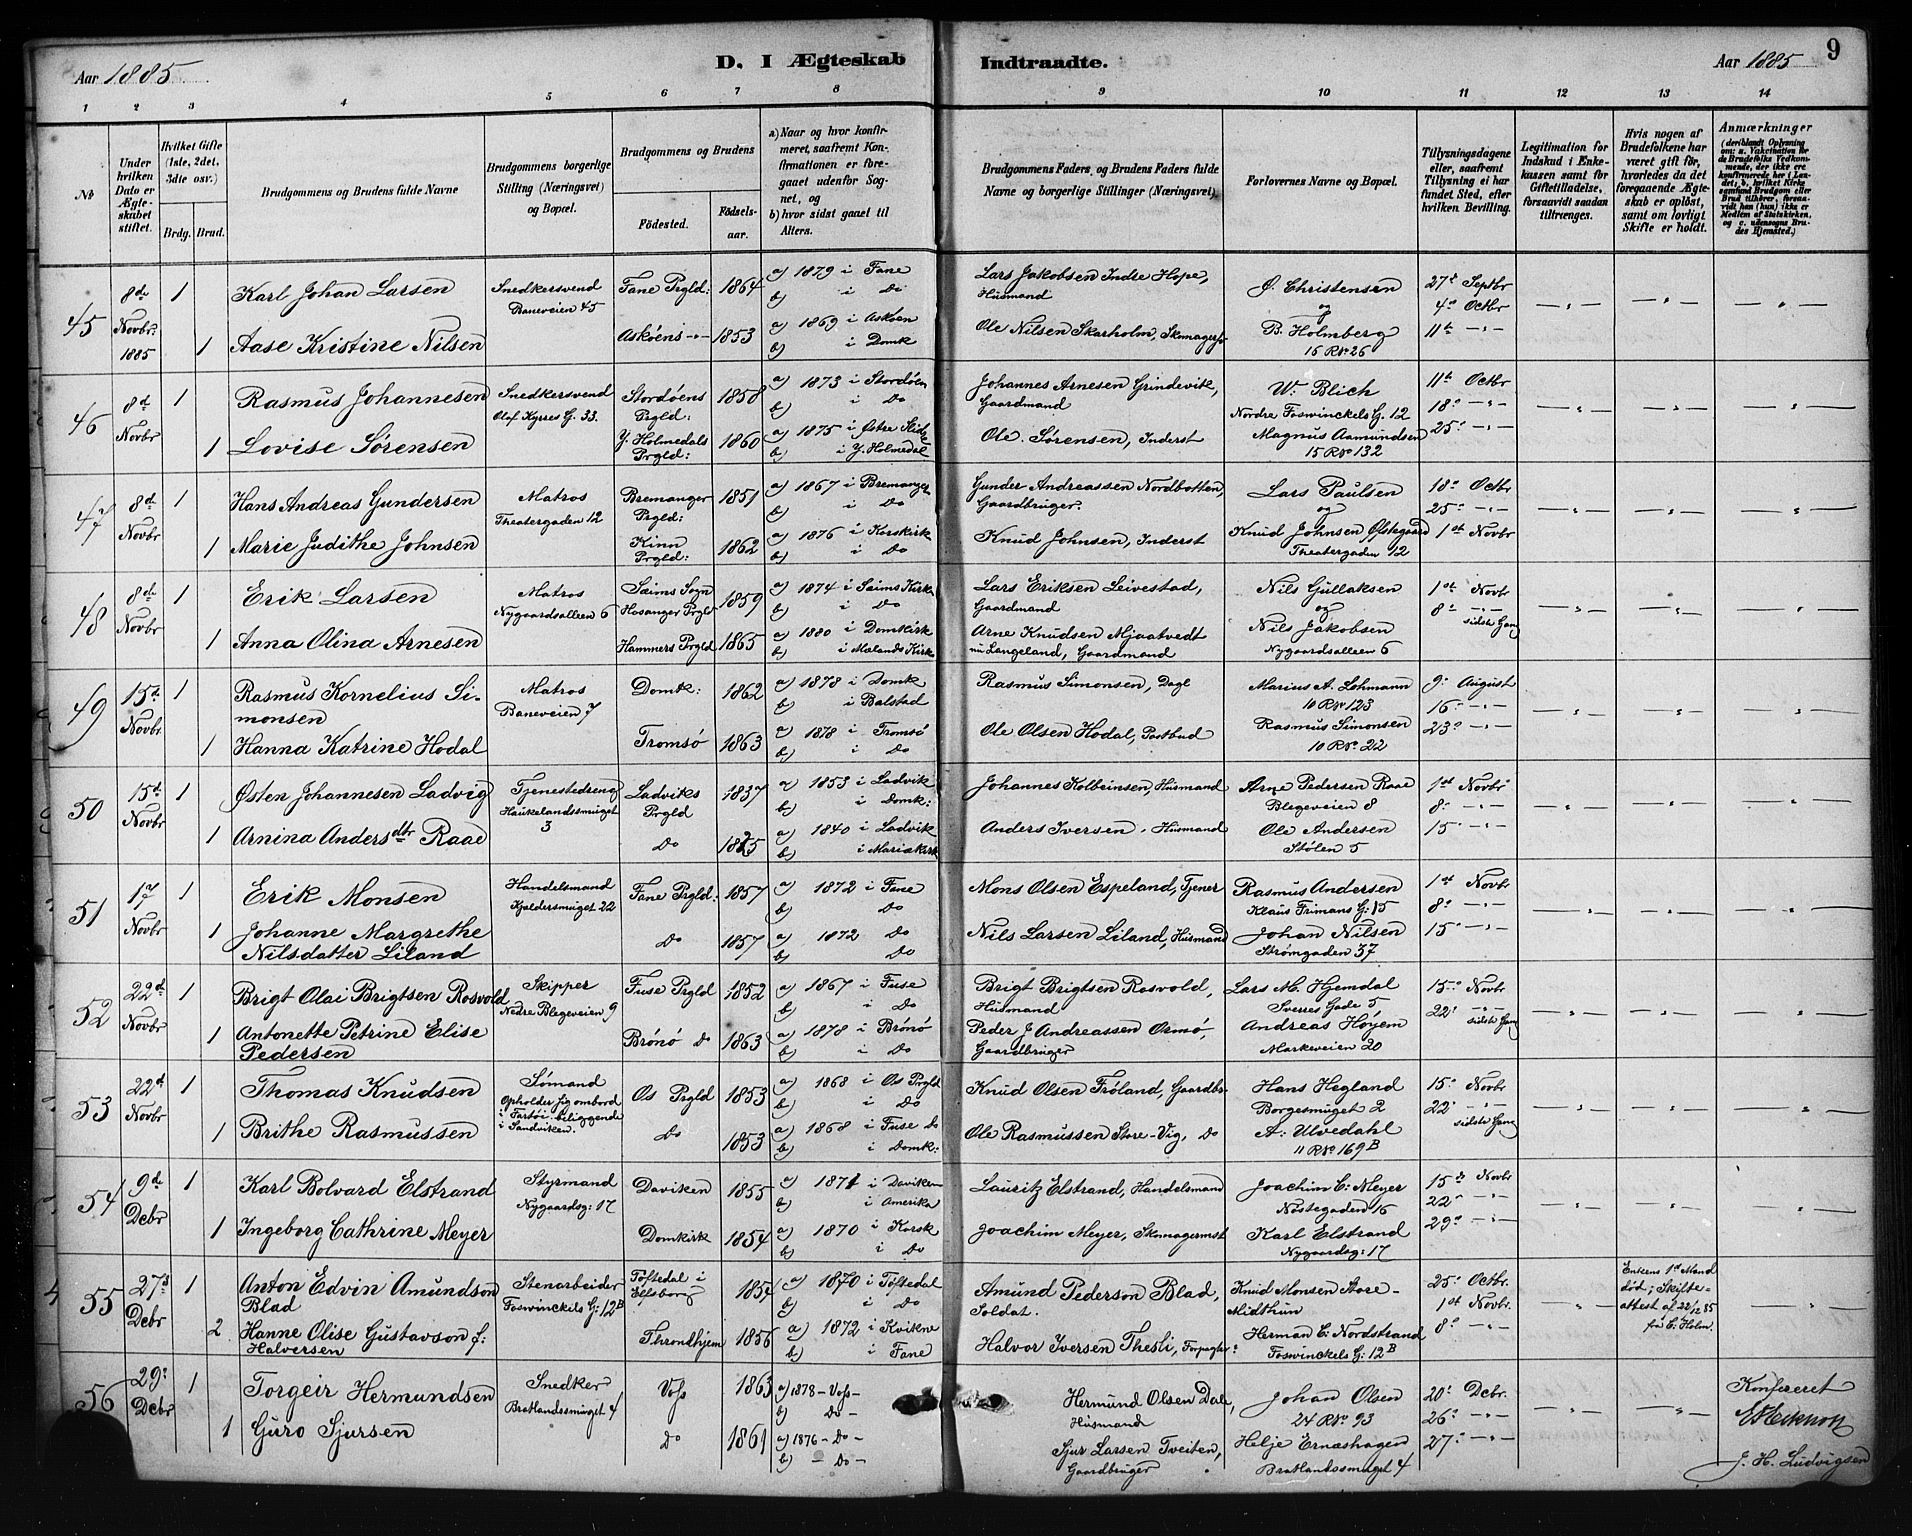 Aar 1885
D. I Ægteskab Indtraadte.
Aar 1885
9
1 2 3 4 5 6 7 8 9 10 11 12 13 14
No
Under hvilken Dato er Ægteskabet stiftet.
Hvilket Gifte (1ste, 2det, 3dte osv.)
Brdg. Brud.
Brudgommens og Brudens fulde Navne
Brudgommens borgerlige Stilling (Næringsvei) og Bopæl.
Brudgommens og Brudens
Fødested.
Fødselsaar.
a) Naar og hvor konfirmeret, saafremt Konfirmationen er foregaaet udenfor Sognet, og
b) hvor sidst gaaet til Alters.
Brudgommens Faders, og Brudens Faders fulde Navne og borgerlige Stillinger (Næringsvei)
Forlovernes Navne og Bopæl.
Tillysningsdagene eller, saafremt Tillysning ei har fundet Sted, efter hvilken Bevilling.
Legitimation for Indskud i Enkekassen samt for Giftetilladelse, forsaavidt saadan tiltrænges.
Hvis nogen af Brudefolkene har været gift før, hvorledes da det foregaaende Ægteskab er opløst, samt om lovligt Skifte er holdt.
Anmærkninger (deriblandt Oplysning om: a. Vakcination for de Brudefolks Vedkommende, der ikke ere konfirmerede her i Landet; b. hvilket Kirkesamfund Brudgom eller Brud tilhører, forsaavidt han (hun) ikke er Medlem af Statskirken, og c. udensogns Brudes Hjemsted.)
45 8de Novbr. 1885 1 Karl Johan Larsen Snedkersvend Baneveien 45 Fane Prgld: 1864 a) 1879 i Fane b) i Do Lars Jakobsen Indre Hope, Husmand Ø. Christensen og 27de Septbr 4de Octbr
1 Aase Kristine Nilsen Askøens -"- 1853 a) 1869 i Askøen b) i Domk Ole Nilsen Skarholm, B. Holmberg 16 R No 26 11te -"-
46 8de Novbr 1 Rasmus Johannesen Snedkersvend Olaf Kyrres G. 33. Stordøens Prgld: 1858 a) 1873 i Stordøen b) i Do Johannes Arnesen Grindevik, Gaardmand W. Blich Nordre Foswinckels G. 12 11te Octbr 18de -"-
1 Lovise Sørensen Y. Holmedals Prgld: 1860 a) 1875 i Østre b) i Y. Holmedal Ole Sørensen, Inderst Magnus Aamundsen 15 R No 132 25de -"-
47 8de Novbr 1 Hans Andreas Gundersen Matros Theatergaden 12 Bremanger Prgld: 1851 a) 1867 i Bremanger b) i Do Gunder Andreassen Nordbotten, Gaardbruger. Lars Paulsen og 18de Octbr 25de -"-
1 Marie Judithe Johnsen Kinn Prgld: 1862 a) 1876 i Korskirk b) i Do Knud Johnsen, Inderst Knud Johnsen Østegaard Theatergaden 12 1st Novbr
48 8de Novbr 1 Erik Larsen Matros Nygaardsalleen 6 Sæims Sogn Hosanger Prgld 1859 a) 1874 i Sæims Kirke b) i Do Lars Eriksen Leivestad, Gaardmand Nils Gullaksen og 1st Novbr 8de -"- sidste Gang
1 Anna Olina Arnesen Hammers Prgld 1865 a) 1880 i Domkirk b) i Mælands Kirke Arne Knudsen Mjaatvedt nu Langeland, Gaardmand Nils Jakobsen Nygaardsalleen 6
49 15de Novbr 1 Rasmus Kornelius Simonsen Matros Baneveien 7 Domk: 1862 a) 1878 i Domk b) i Balstad Rasmus Simonsen, Dagl Marius A. Lohmann 10 R No 123 9de August 16de -"-
1 Hanna Katrine Hodal Tromsø 1863 a) 1878 i Tromsø b) i Do Ole Olsen Hodal, Postbud Rasmus Simonsen 10 R No 22 23de -"-
50 15de Novbr 1 Østen Johannesen Ladvig Tjenestedreng Haukelandssmuget 3 Ladviks Prgld 1837 a) 1853 i Ladvik b) i Domk: Johannes Kolbeinsen, Husmand Arne Pedersen Raae Blegeveien 8 1st Novbr 8de -"-
1 Arnina Andersdtr Raae Do 1825 a) 1840 i Ladvik b) i Mariækirk Anders Iversen, Husmand Ole Andersen Stølen 5 15de -"-
51 17 Novbr 1 Erik Monsen Handelsmand Kjeldersmuget 22 Fane Prgld: 1857 a) 1872 i Fane b) Do Mons Olsen Espeland, Tjener Rasmus Andersen Klaus Frimans G: 15 1st Novbr 8de -"-
1 Johanne Margrethe Nilsdatter Liland Do 1857 a) 1872 Do b) Do Nils Larsen Liland, Husmand Johan Nilsen Strømgaden 37 15de -"-
52 22de Novbr 1 Brigt Olai Brigtsen Rosvold Skipper Nedre Blegeveien 9 Fuse Prgld 1852 a) 1867 i Fuse b) i Do Brigt Brigtsen Rosvold, Husmand Lars M. Hjemdal Sverres Gade 5 15de Novbr 22de -"- sidste Gang
1 Antonette Petrine Elise Pedersen Brønø Do 1863 a) 1878 i Brønø b) i Do Peder J Andreassen Ormø, Gaardbruger Andreas Høyem Markeveien 20
53 22de Novbr 1 Thomas Knudsen Sømand Opholder sig ombord i Fartøi beliggende i Sandviken. Os Prgld 1853 a) 1868 i Os Prgld b) i Do Knud Olsen Frøland, Gaardbr Hans Hegland Borgesmuget 2 15de Novbr 22 -"- sidste Gang
1 Brithe Rasmussen Do 1853 a) 1868 i Fuse Do b) i Domk: Ole Rasmussen Store-Vig, Do A. Ulvedahl 11 R No 169 B
54 9de Decbr 1 Karl Bolvard Elstrand Styrmand Nygaardsg: 17 Daviken 1855 a) 1871 i Daviken b) i Amerika Lauritz Elstrand, Handelsmand Joachim C: Meyer Nøstegaden 16 15de Novbr 22 -"-
1 Ingeborg Cathrine Meyer Domkirk 1854 a) 1870 i Korsk b) i Do Joachim Meyer, Skomagermst Karl Elstrand Nygaardsg: 17 29de -"-
55 27de Decbr 1 Anton Edvin Amundson Blad Stenarbeider Foswinckels G: 12 B Töftedal i Elfsborg 1854 a) 1870 i Töftedal b) i Do Amund Pederson Blad, Soldat. Knud Monsen Store-Midthun 25de Octbr. 1st Novbr. Enkens 1st Mand død; Skifteattest af 22/12 85 fra C: Holm.
2 Hanne Olise Gustavson f: Halversen Throndhjem 1856 a) 1872 i Kvikne b) i Fane Halvor Iversen Thesli, Forpagter Herman C: Nordstrand Foswinckels G: 12 B 8de -"-
56 29de Decbr 1 Torgeir Hermundsen Snedker Bratlandssmuget 4 Voss 1863 a) 1878 - Voss- b) - Do - Hermund Olsen Dale, Husmand Johan Olsen 24 R No 93 20de Decbr. 26de -"-
1 Guro Sjursen Do 1861 a) 1876 - Do - b) - Do - Sjur Larsen Tveiten, Gaardbruger Helje Ernæshagen Bratlandssmuget 4 27de -"-
Konfereret
J. H. Ludvigsen